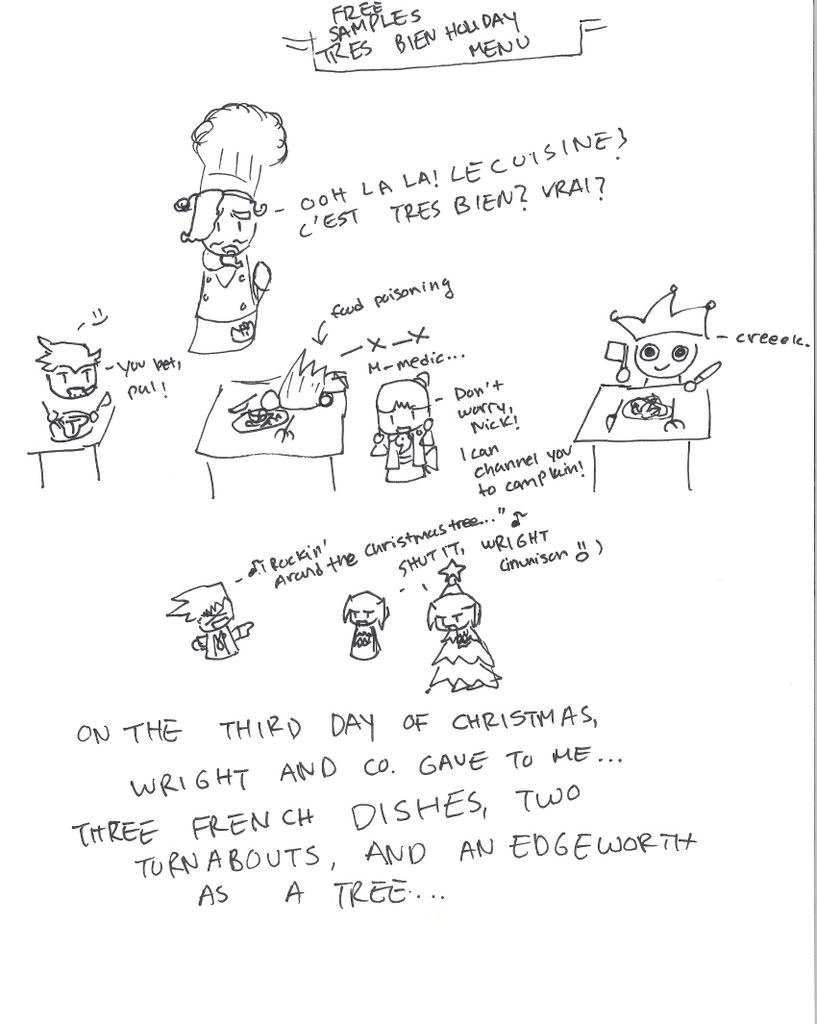 FREE
SAMPLES
TRES BIEN HOLIDAY
MENU
OOH LA LA! LE CUISINE?
C'EST TRES BIEN? VRAI?
food poisoning
You bet,
pal!
M-medic...
Don't
worry,
Nick!
I can
channel you
to complain!
creeek.
"Rockin'
Around the Christmas tree..."
SHUT IT, WRIGHT
(in unison
ON THE THIRD DAY OF CHRISTMAS,
WRIGHT AND CO. GAVE TO ME...
THREE FRENCH DISHES, TWO
TURNABOUTS, AND AN EDGEWORTH
AS A TREE...